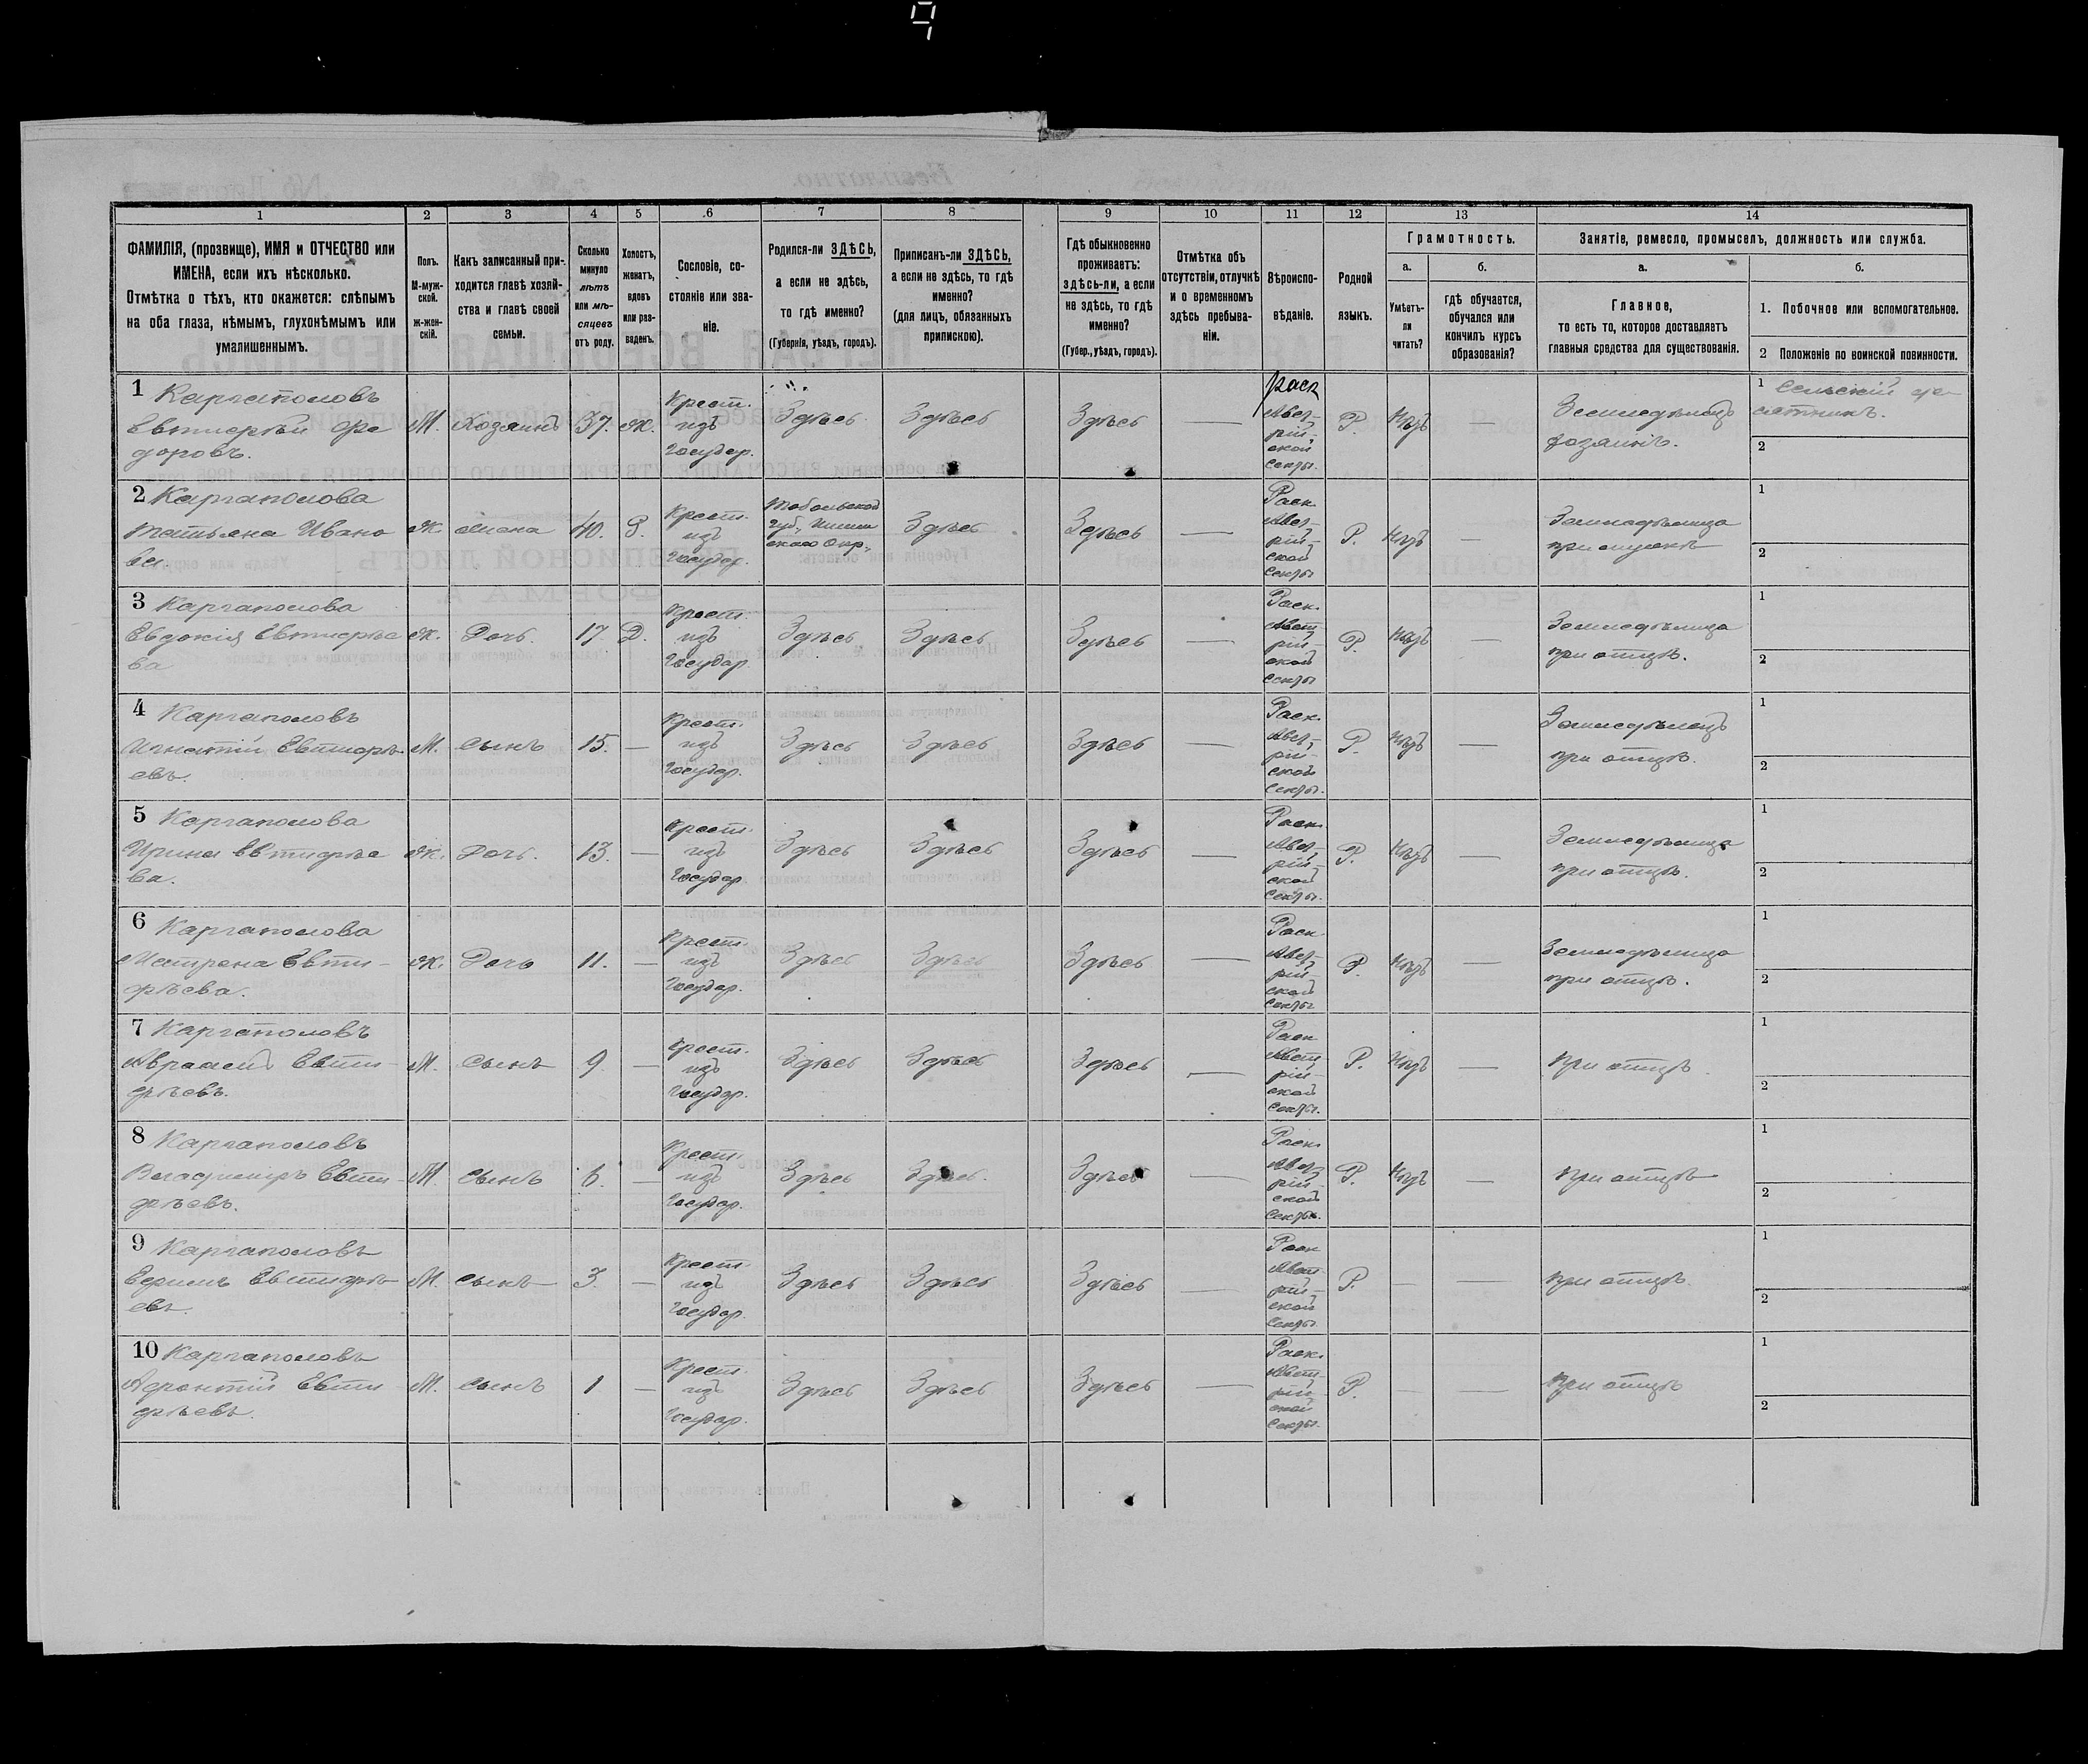 1
2
3
4
5
6
7
8
9
10
11
12
13
14
ФАМИЛІЯ, (прозвище), ИМЯ и ОТЧЕСТВО или
ИМЕНА, если ихъ нѣсколько.
Отмѣтка о тѣхъ, кто окажется: слѣпымъ
на оба глаза, нѣмымъ, глухонѣмымъ или
умалишеннымъ.
Полъ.
М-муж-
ской.
ж-жен-
скій.
Какъ записанный при-
ходится главѣ хозяй-
ства и главѣ своей
семьи.
Сколько
минуло
лѣтъ
или мѣ-
сяцевъ
отъ роду.
Холостъ,
женатъ,
вдовъ
или раз-
веденъ.
Сословіе, со-
стояніе или зва-
ніе.
Родился-ли ЗДѢСЬ,
а если не здѣсь,
то гдѣ именно?
(Губернія, уѣздъ, городъ).
Приписанъ-ли ЗДѢСЬ,
а если не здѣсь, то гдѣ
именно?
(для лицъ, обязанныхъ
припискою).
Гдѣ обыкновенно
проживаетъ:
здѣсь-ли, а если
не здѣсь, то гдѣ
именно?
(Губер., уѣздъ, городъ).
Отмѣтка объ
отсутствіи, отлучкѣ
и о временномъ
здѣсь пребыва-
ніи.
Вѣроиспо-
вѣданіе.
Родной
языкъ.
Грамотность.
а.
Умѣетъ-
ли
читать?
б.
гдѣ обучается,
обучался или
кончилъ курсъ
образованія?
Занятіе, ремесло, промыселъ, должность или служба.
а.
Главное,
то есть то, которое доставляетъ
главныя средства для существованія.
б.
1. Побочное или вспомогательное.
2 Положеніе по воинской повинности.
1 Каргаполовъ
Евтифѣй Фе
доровъ.
М.
Хозяинъ
37.
Ж.
Крест.
изъ
Государ.
Здѣсь
Здѣсь
Здѣсь
раск
Авст-
рій-
ской
секты.
Р.
Нѣтъ
Земледѣлецъ
хозяинъ.
1 Сельскій де
сятникъ.
2
2 Каргаполова
Татьяна Ивано
ва.
Ж.
жена
40.
З.
Крест.
изъ
Государ.
Тобольской
губ., Ишим
скаго Окр.
Здѣсь
Здѣсь
Раск
Авст-
рій-
ской
секты
Р.
Нѣтъ
Земледѣлица
при мужѣ
1
2
3 Каргаполова
Евдокія Евтифѣе
ва
Ж.
Дочь.
17.
Д.
Крест.
изъ
Государ.
Здѣсь
Здѣсь
Здѣсь
Раск.
Авст
рій-
ской
секты
Р.
Нѣтъ
Земледѣлица
при отцѣ.
1
2
4 Каргаполовъ
Игнатій Евтифѣ-
евъ.
М.
сынъ
15.
Крест.
изъ
Государ.
Здѣсь
Здѣсь
Здѣсь
Раск.
Авст-
рій-
ской
секты.
Р.
Нѣтъ
Земледѣлецъ
при отцѣ.
1
2
5 Каргаполова
Ирина Евтифѣе
ва.
Ж.
Дочь.
13.
Крест.
изъ
Государ
Здѣсь
Здѣсь
Здѣсь
Раск.
Авст-
рій-
ской
секты.
Р.
Нѣтъ
Земледѣлица
при отцѣ.
1
2
6 Каргаполова
Матрена Евти-
фѣева.
Ж.
Дочь
11.
Крест.
изъ
Государ.
Здѣсь
Здѣсь
Здѣсь
Раск.
Авст-
рій-
ской
секты
Р.
Нѣтъ
Земледѣлица
при отцѣ.
1
2
7 Каргаполовъ
Авраамъ Евти-
фѣевъ.
М.
сынъ
9
Крест.
изъ
Государ.
Здѣсь
Здѣсь
Здѣсь
Раск
Авст
рій-
ской
секты.
Р.
Нѣтъ
при отцѣ
1
2
8 Каргаполовъ
Владиміръ Евти-
фѣевъ.
М.
сынъ
6.
Крест.
изъ
Государ.
Здѣсь
Здѣсь.
Здѣсь
Раск.
Авст
рій-
ской
секты.
Р.
Нѣтъ
при отцѣ
1
2
9 Каргаполовъ
Ефимъ Евтифѣ
евъ.
М.
сынъ
3.
Крест.
изъ
Государ.
Здѣсь
Здѣсь
Здѣсь
Раск
Авст
рій-
ской
секты.
Р.
при отцѣ.
1
2
10 Каргаполовъ
Евти
фѣевъ.
М.
сынъ
1
Крест.
изъ
Государ.
Здѣсь
Здѣсь
Здѣсь
Раск.
Авст
рій-
ской
секты.
Р.
при отцѣ
1
2